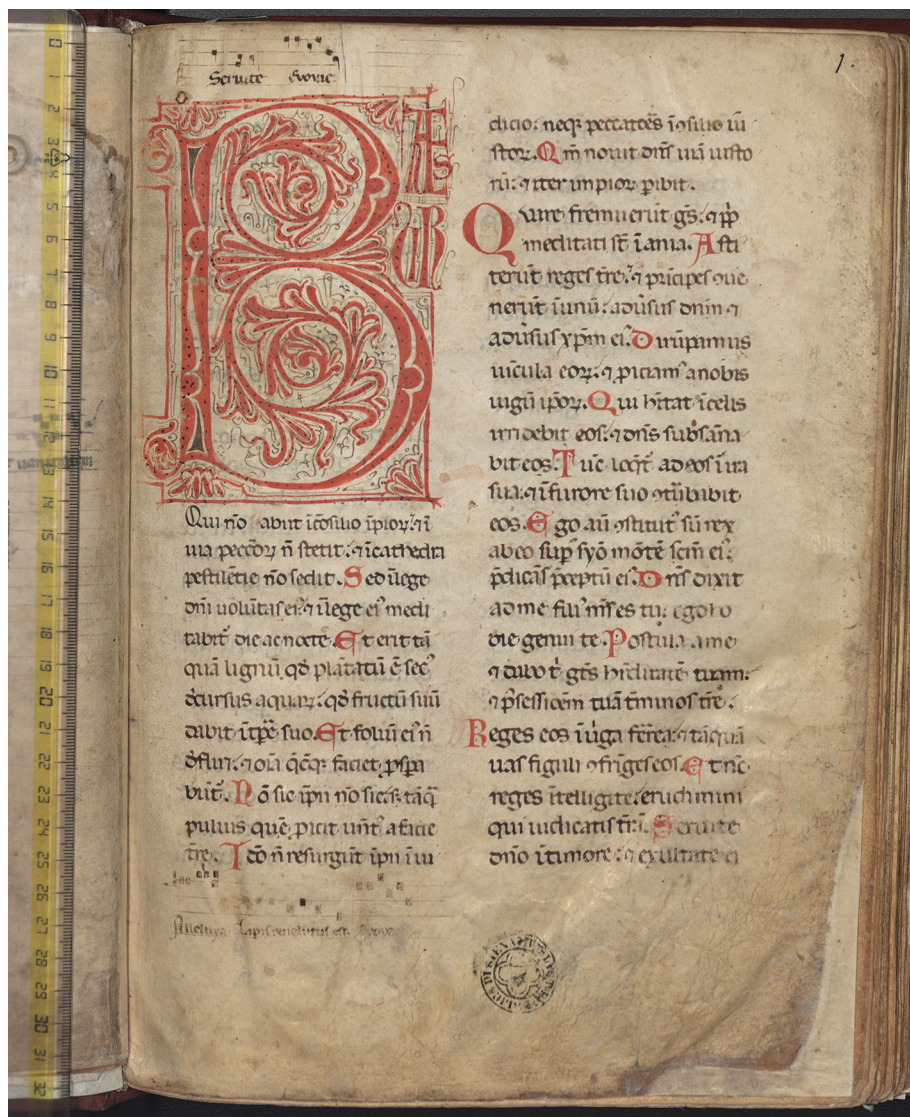 Seruite Euouae
1.
BEATUS
VIR
Qui nō abiit ī cōsilio īpioꝝ. ⁊ ī
uia peccōꝝ n̄ stetit. ⁊ ī cathedra
pestilētie nō sedit. Sed ī lege
dn̄i uolūtas ei᷒. ⁊ ī lege ei᷒ medi
tabit᷒ die ac nocte. Et erit tā
quā lignū qd̄ plātatū ē sec᷒
decursus aquaꝝ. qd̄ fructū suū
dabit ī tp̄e suo. Et foliū ei᷒ n̄
deflu&. ⁊ oīa q̄cūq̄ faciet ꝓspa
būt᷒. Nō sic īpii nō sic. s; tāq̄
puluis quē ꝓicit uēt᷒ a facie
tr̄e. Ideo n̄ resurgūt īpii ī iu
Alleluya. Lapis reuolutus est. Euouae
dicio. neq̨ peccatores ī ꝯsilio iu
stoꝝ. Qm̄ nouit dn̄s uiā iusto
rū. ⁊ iter impioꝝ ꝑibit.
Quare fremuerūt gēs. ⁊ ppl̄i
meditati sūt īania. Asti
terūt reges tr̄e. ⁊ prīcipes ꝯue
nerūt ī unū. adūsus dn̄m ⁊
adūsus xp̄m ei᷒. Dirūpamus
uīcula eoꝝ. ⁊ ꝓiciam᷒ a nobis
iugū ip̄oꝝ. Qui hītat ī celis
irridebit eos. ⁊ dn̄s subsāna
bit eos. Tūc loq̄t᷒ ad eos ī ira
sua. ⁊ ī furore suo ꝯt᷒babit
eos. Ego aū ꝯstitut᷒ sū rex
ab eo sup̄ syō mōtē scm̄ ei᷒.
p̄dicās p̄ceptū ei᷒. Dn̄s dixit
ad me fili᷒ m̄s es tu. ego ho
die genui te. Postula a me
⁊ dabo t̄ gēs hīditatē tuam.
⁊ possessionem tuā t̄minos tr̄e.
Reges eos ī uirga ferrea. ⁊ tāquā
uas figuli ꝯfrīges eos. Et nūc
reges ītelligite. erudimini
qui iudicatis tr̄ā. Seruite
dn̄o ī timore. ⁊ exultate ei